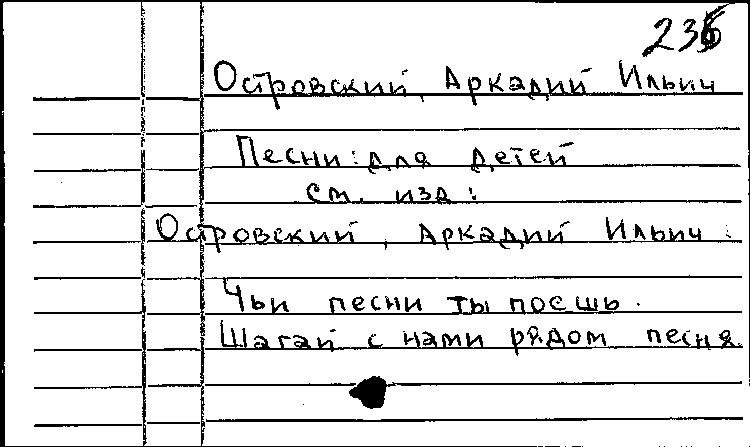 Островский, Аркадий Ильич
Песни: для детей
см. изд:
Островский, Аркадий Ильич.
Чьи песни ты поешь.
Шагай с нами рядом песня.